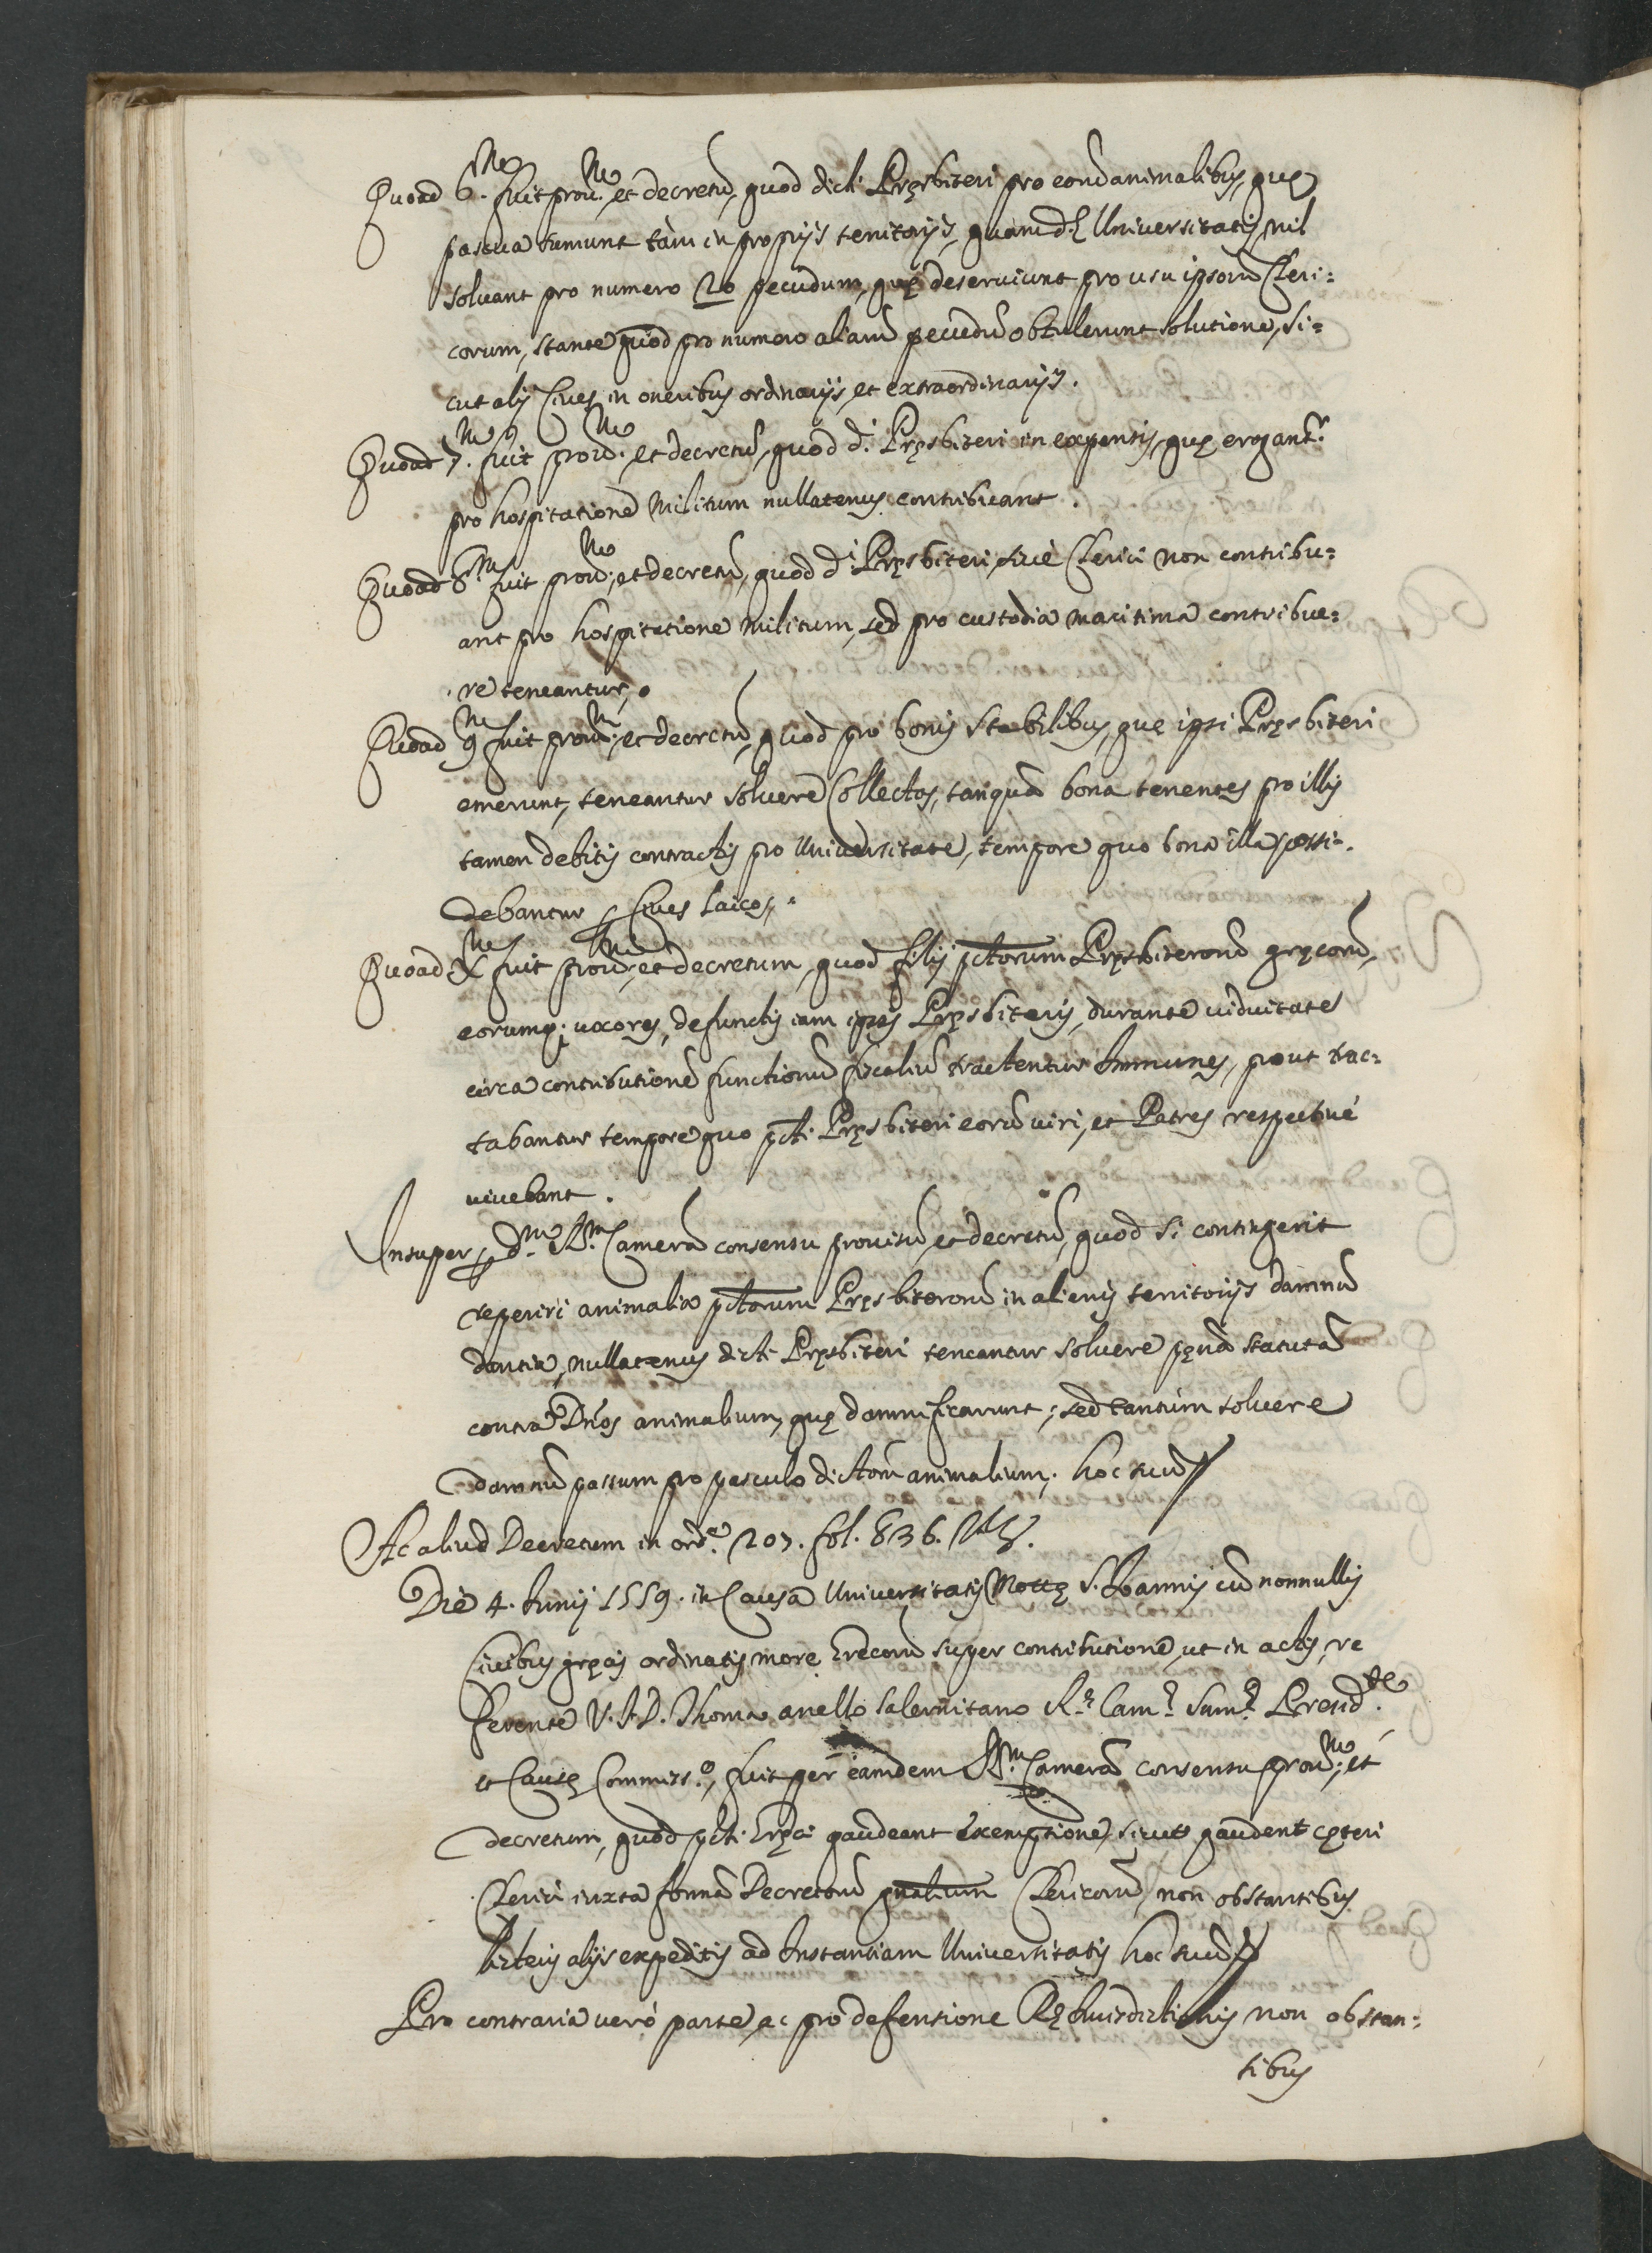 Quoad 6.m fuit prou.m et decretũ, quod dicti Pręsbiteri pro eorũ animalibus, quę
pascua sumunt tàm in proprijs territorijs, quàm d.ę Uniuersitatis, nil
soluant pro numero 20 pecudum, quę deseruiunt pro usu ipsorũ Cleri:
corum, stante quod pro numero aliarũ pecudũ obtulerunt solutione, si:
cut alij Ciues in oneribus ordinarijs, et extraordinarijs.
Quoad 7.m fuit prou.m et decretũ, quod d.i Pręsbiteri in expensis, quę erogant.r
pro hospitatione Militum nullatenus contribuant.
Quoad 8.m fuit prou.m et decretũ, quod d.i Pręsbiteri, siuè Clerici non contribu:
ant pro hospitatione Militum, sed pro custodia maritima contribue:
re teneantur.
Quoad 9.m fuit prou.m et decretũ, quod pro bonis stabilibus, quę ipsi Pręsbiteri
emerunt, teneantur soluere Collectas, tanquã bona tenentes pro illis
tamen debitis contractis pro Uniuersitate, tempore quo bona illa possi:
debantur p Ciues laicos.
Quoad X.m fuit prou.m et decretum, quod filij pctorum Pręsbiterorũ gręcorũ,
eorumq; uxores, defunctis iam ipsis Pręsbiteris, durante uiduitate
circa contributionẽ functionũ fiscaliũ tractentur Immunes, prout trac:
tabantur tempore quo pcti. Pręsbiteri eorũ uiri, et Patres respectiuè
uiuebant.
Insuper p d.m R.m Camerã consensu prouisũ, et decretũ, quod si contingerit
reperiri animalia pctorum Pręsbiterorũ in alienis territorijs damnũ
dantia, nullatenus dicti Pręsbiteri teneantur soluere pęnã statutã
contra Dños animalium, quę damnificarunt; sed tantùm soluere
damnũ passum pro pasculo dictorũ animalium. hoc suũ
Ac aliud Decretum in ord.e 207. fol. 836.
Die 4. Iunij 1559. in Causa Uniuersitatis Mottę S. Ioannis cũ nonnullis
Ciuibus gręcis ordinatis more Grecorũ super contributione, ut in actis, re
ferente V.I.D. Thoma anello Salernitano R.ę Cam.ę Sum.ę Pręsid.te
et Causę Commiss.o, fuit per eamdem R.m Camerã consensu prou.m, et
decretum, quod pcti. Gręci gaudeant exemptione, sicut gaudent cęteri
Clerici iuxta formã Decretorũ gñalium Clericorũ, non obstantibus
literis alijs expeditis ad Instantiam Uniuersitatis hoc suũ
Pro contraria uerò parte, ac pro defensione Rę Iurisdictionis non obstan:
tibus